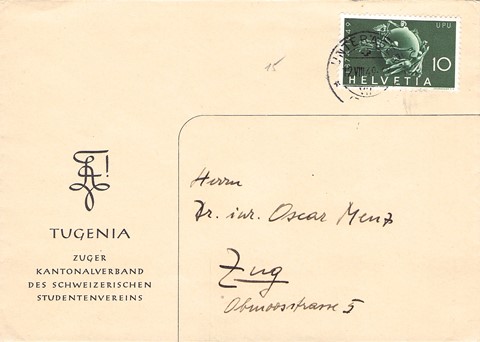 15
1949
UPU
10
HELVETIA
TUGENIA
ZUGER
KANTONALVERBAND
DES SCHWEIZERISCHEN
STUDENTENVEREINS
Herrn
Dr. iur. Oscar Menz
Zug
Obmoosstrasse 5